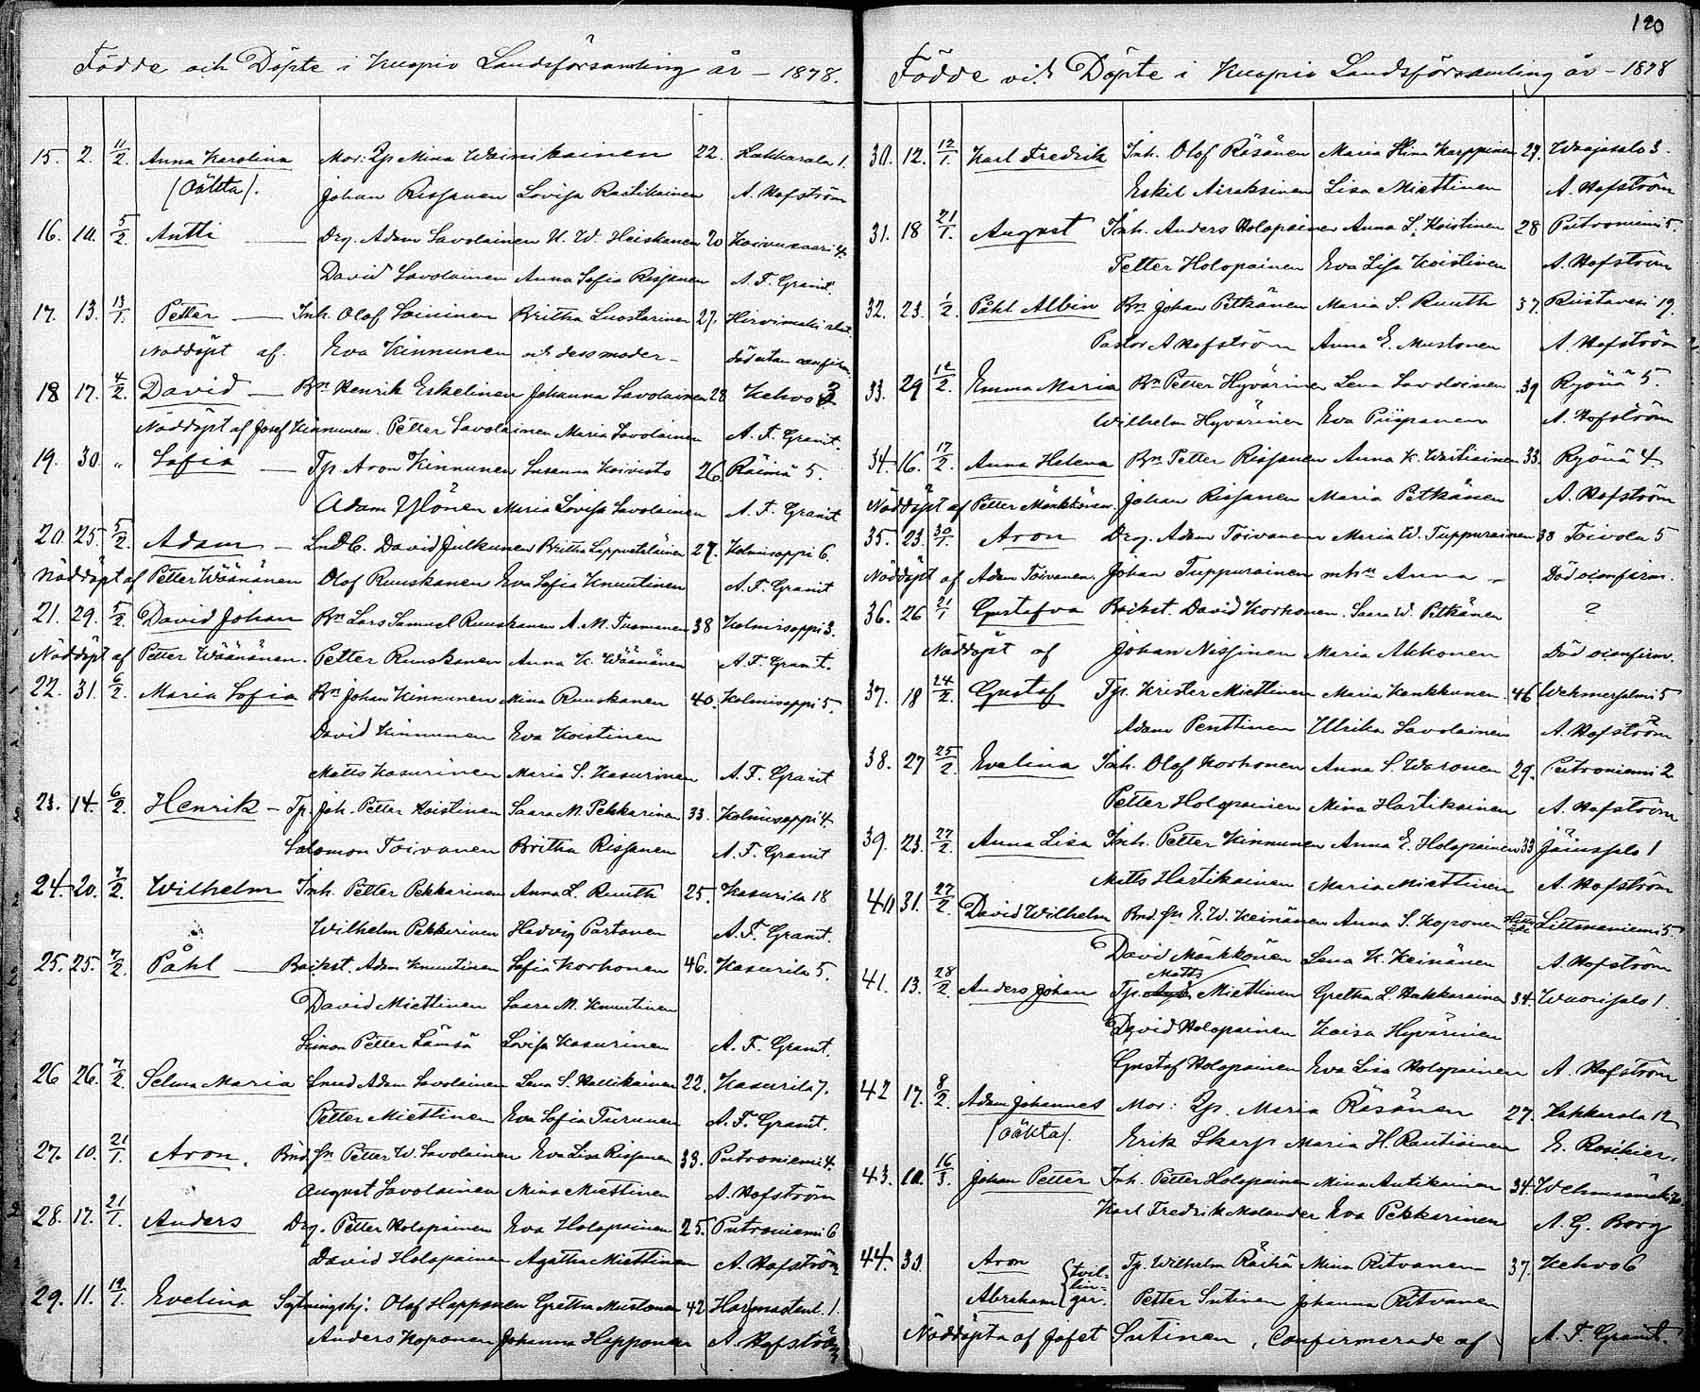 Födde och Döpte i Kuopio Landsförsamling år – 1878.
15. 2. 11/2. Anna Karolina Mor: Pp Mina Wainikainen 22. Hakkarala 1.
(Oäkta). Johan Rissanen Lovisa Rautikainen A. Hofström
16. 10. 5/2. Antti — Drg. Adam Savolainen U. W. Heiskanen 20 Koivusaari 4.
David Savolainen Anna Sofia Rissanen A. F. Granit.
17. 13. 13/1. Petter — Inh. Olof Soininen Britha Luostarinen 27. Hirvimäki
Näddöpt af. Eva Kinnunen och dess moder – död utan confirm.
18 17. 4/2. David — Bn Henrik Eskelinen Johanna Savolainen 28 Kehvo 3
Näddöpt af Josef Kinnunen. Petter Savolainen Maria Savolainen A. F. Granit.
19. 30. " Sofia — Tp. Aron Kinnunen Susanna Koivisto 26. Räimä 5.
Adam Ylönen Maria Lovisa Savolainen A. F. Granit
20. 25. 5/2. Adam — LndB. David Julkunen Britha Lappveteläinen 27. Kolmisoppi 6.
Näddöpt af Petter Wäänänen Olof Ruuskanen Eva Sofia Knuutinen A. F. Granit
21. 29. 5/2. David Johan Bn Lars Samuel Ruuskanen A. M. Tuomanen 38 Kolmisoppi 3.
Näddöpt af Petter Wäänänen. Petter Ruuskanen Anna K. Wäänänen A. F. Granit.
22. 31. 6/2. Maria Sofia Bn Johan Kinnunen Mina Ruuskanen 40. Kolmisoppi 5.
David Kinnunen Eva Koistinen
Matts Kasurinen Maria S. Kasurinen A. F. Granit
23. 14. 6/2. Henrik – Tp. Joh. Petter Koistinen Saara M. Pekkarinen 33. Kolmisoppi 4.
Salomon Toivanen Britha Rissanen A. F. Granit
24. 20. 7/2. Wilhelm Inh. Petter Pekkarinen Anna L. Ruuth 25. Kasurila 18
Wilhelm Pekkarinen Hedvig Partanen A. F. Granit.
25. 25. 7/2. Påhl — Backst. Adam Knuutinen Sofia Korhonen 46. Kasurila 5.
David Miettinen Saara M. Knuutinen
Simon Petter Lämsä Lovisa Kasurinen A. F. Granit.
26 26. 7/2. Selma Maria Smed Adam Savolainen Lena S. Hallikainen 22. Kasurila 7.
Petter Miettinen Eva Sofia Turunen A. F. Granit.
27. 10. 21/1. Aron. Bnd. Sn Petter W. Savolainen Eva Lisa Rissanen 33. Putroniemi 4.
August Savolainen Mina Miettinen A. Hofström
28. 17. 21/1. Anders Drg. Petter Holopainen Eva Holopainen 25. Putroniemi 6
David Holopainen Agatha Miettinen A. Hofström
29. 11. 19/1. Evelina Sytningshj. Olof Happonen Gretha Mustonen 42 1.
Anders Koponen Johanna Happonen A. Hofström
120
Födde och Döpte i Kuopio Landsförsamling år – 1878
30. 12. 12/1. Karl Fredrik Inh. Olof Räsänen Maria Stina Karppinen 29. Waajasalo 3.
Eskil Airaksinen Lisa Miettinen A. Hofström
31. 18 21/1. August Inh. Anders Holopainen Anna L. Koistinen 28 Putroniemi 5.
Petter Holopainen Eva Lisa Koistinen A. Hofström
32. 23. 1/2. Påhl Albin Bn Johan Pitkänen Maria S. Ruuth 37. Riistavesi 19.
Pastor A Hofström Anna E. Mustonen A. Hofström
33. 29 12/2. Emma Maria Bn Petter Hyvärinen Lena Savolainen 39 Ryönä 5.
Wilhelm Hyvärinen Eva Piisponen A. Hofström
34. 16. 17/2. Anna Helena Bn Petter Rissanen Anna K. 33. Ryönä 4
Näddöpt af Petter Mönkkönen. Johan Rissanen Maria Pitkänen A. Hofström
35. 23. 30/1. Aron Drg. Adam Toivanen Maria W. Tuppurainen 38 Toivola 5
Näddöpt af Adam Toivanen. Johan Tuppurainen m hn Anna – Död oconfirm.
36. 26 21/1 Gustafva Backst. David Korhonen. Saara W. Pitkänen ?
Näddöpt af Johan Nissinen Maria Akkonen Död oconfirm.
37. 18 24/2. Gustaf Tp. Krister Miettinen Maria Kankkunen 46 Wehmersalmi 5
Adam Penttinen Ulrika Savolainen A. Hofström
38. 27 25/2. Evelina Inh. Olof Korhonen Anna S. Waronen 29. Putroniemi 2
Petter Holopainen Mina Hartikainen A. Hofström
39. 23. 27/2. Anna Lisa Inh. Petter Kinnunen Anna E. Holopainen 33 Jänissalo 1
Matts Hartikainen Maria Miettinen A. Hofström
40 31. 27/2. David Wilhelm Bnd. Sn E. W. Keinänen Anna S. Koponen Litmaniemi 5.
David Mönkkönen Lena K. Keinänen A. Hofström
41. 13. 28/2. Anders Johan Tp. Matts Miettinen Gretha L. Hakkarainen 34. Waorisalo 1.
David Holopainen Kaisa Hyvärinen
Gustaf Holopainen Eva Lisa Holopainen A. Hofström
42 17. 8/2. Adam Johannes Mor: Pp. Maria Räsänen 27. Hakkarala 12
(Oäkta). Erik Skarp Maria H. Rautiainen E. Rosikier.
43. 10. 16/3. Johan Petter Inh. Petter Holopainen Mina Antikainen 34. Wehmasmäki
Karl Fredrik Molander Eva Pekkarinen A. G. Borg
44. 30. Aron {tvil- Tp. Wilhelm Räihä Mina Ritvanen 37. Kehvo 6
Abraham lingar. Petter Sutinen Johanna Ritvanen
Näddöpta af Jafet Sutinen, Confirmerade af A. F. Granit.